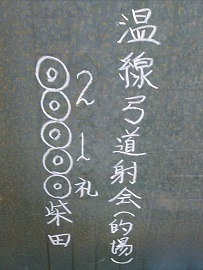 温線弓道射会(的場)
2 1 礼
◎◎◎◎◎柴田